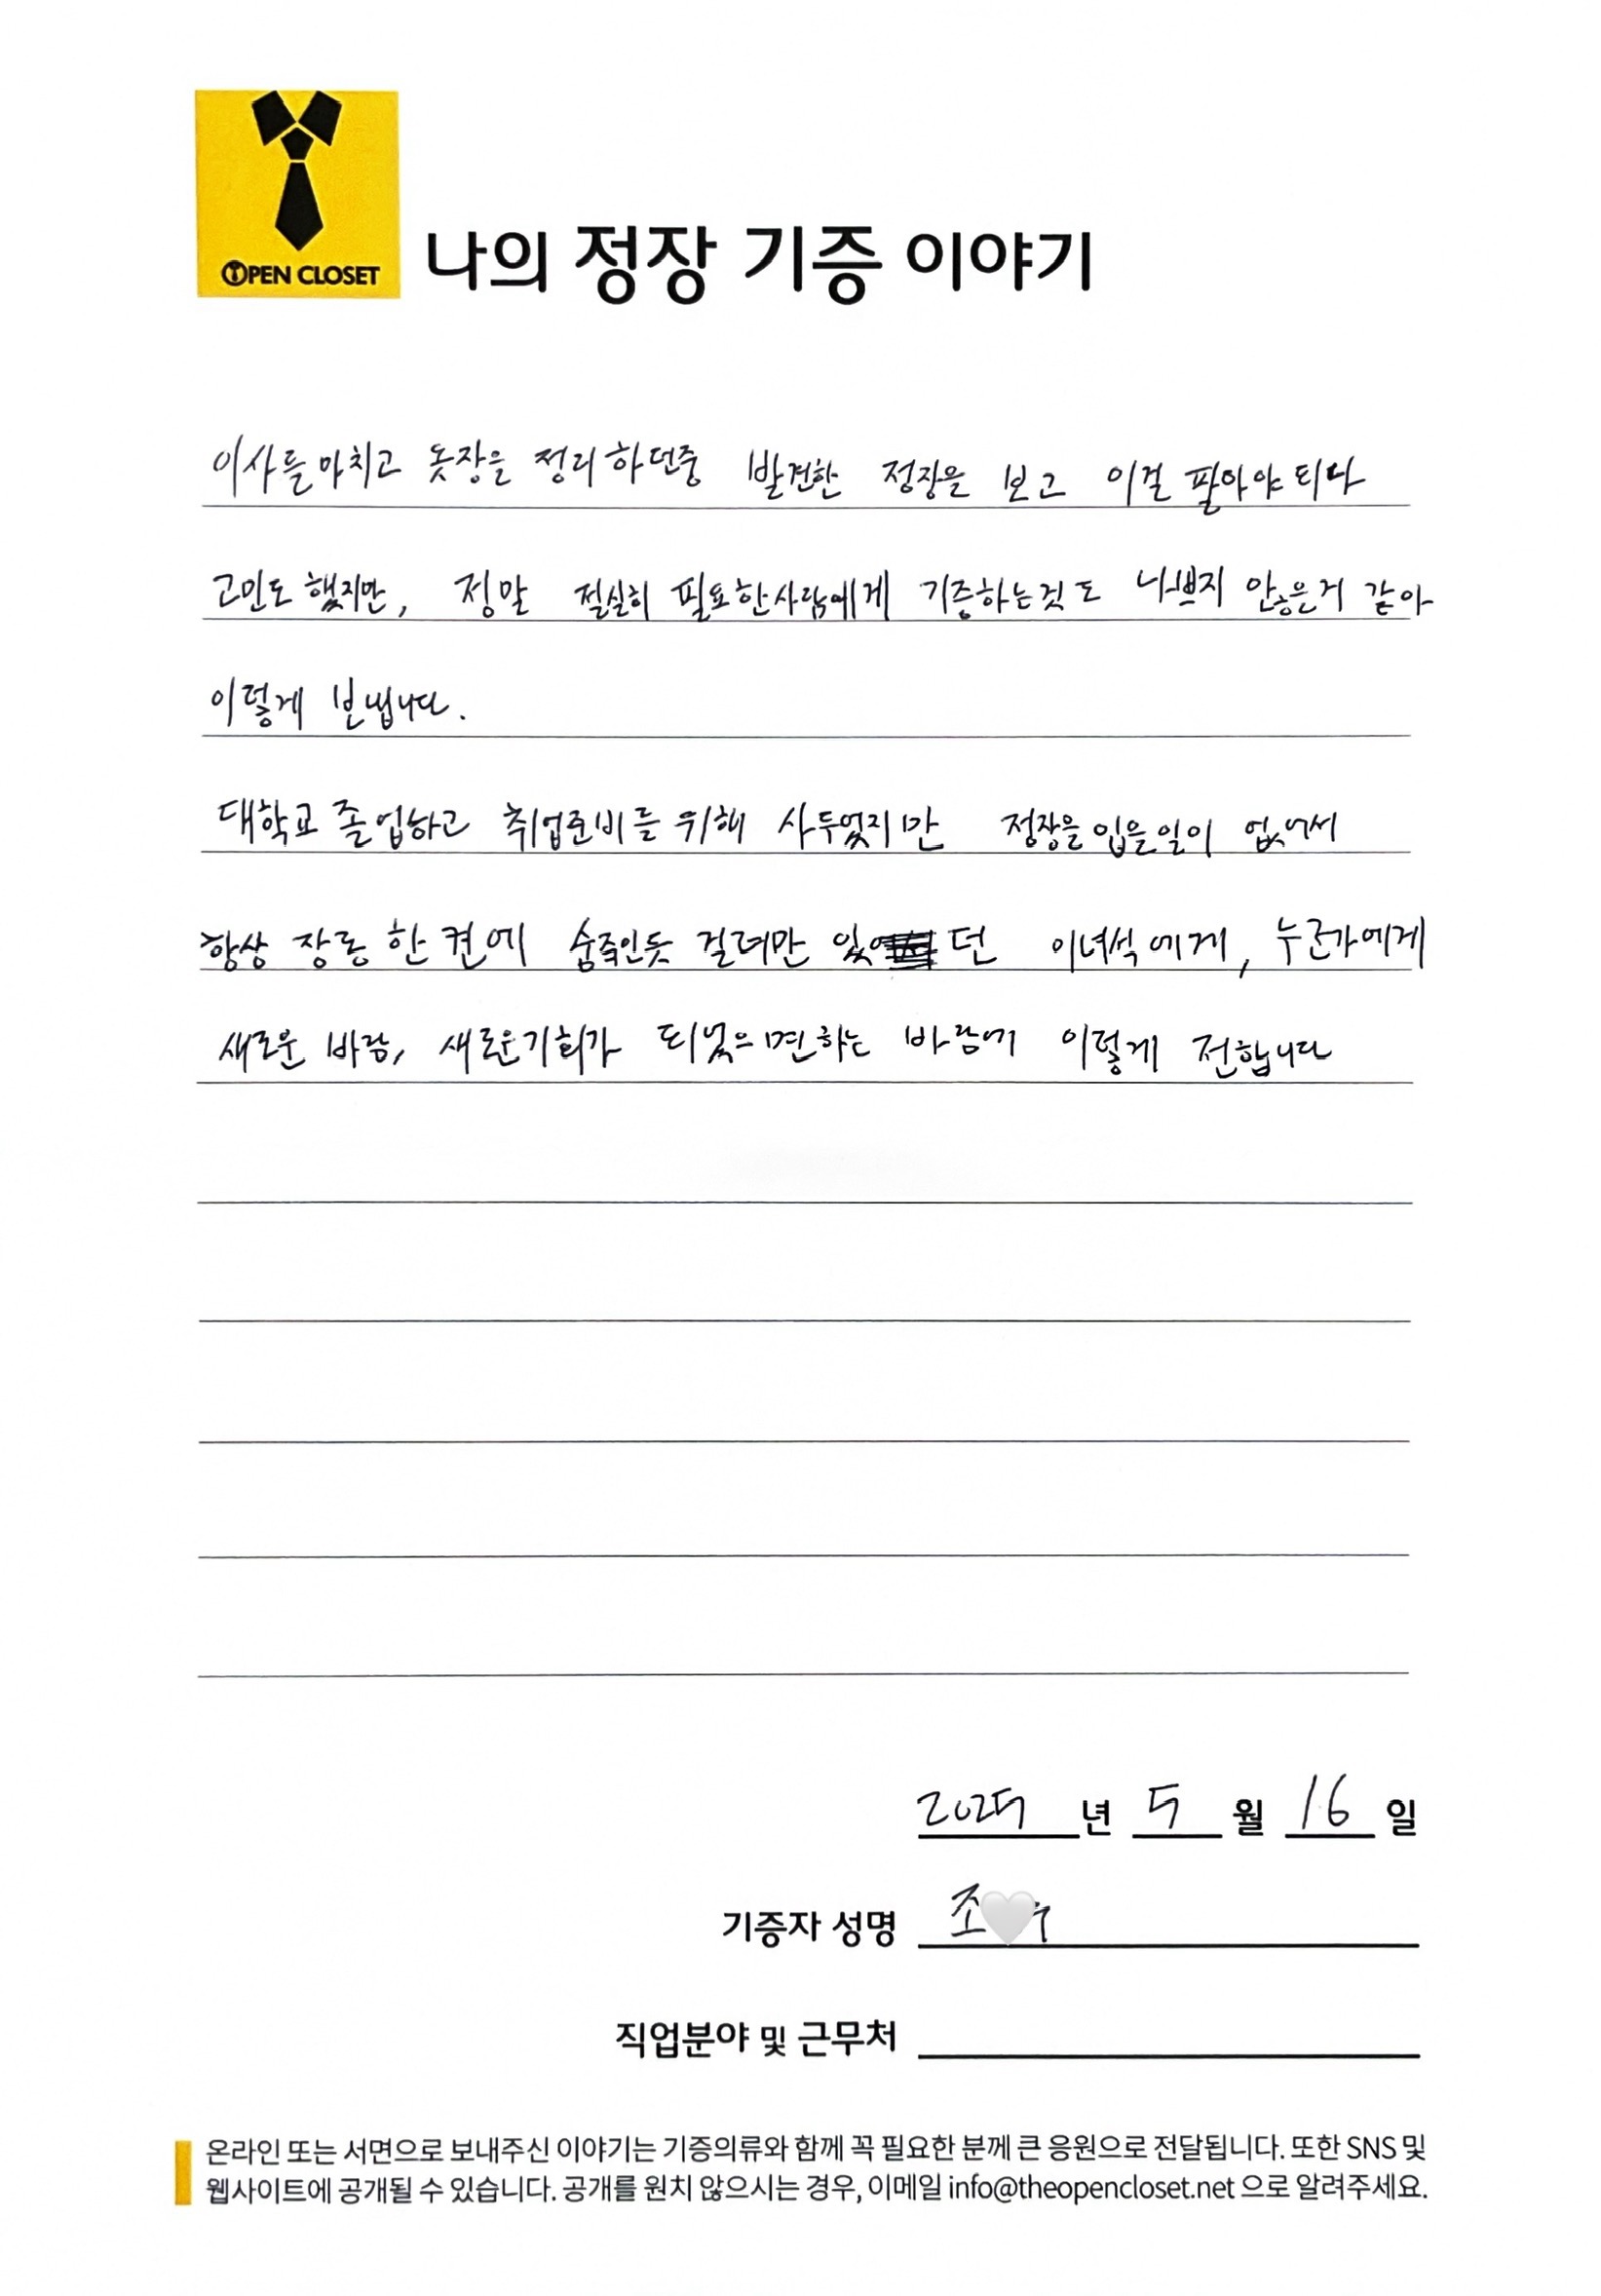 OPEN CLOSET
나의 정장 기증 이야기
이사를 마치고 옷장을 정리하던중 발견한 정장을 보고 이걸 팔아야 되나
고민도 했지만, 정말 절실히 필요한사람에게 기증하는것도 나쁘지 않은거 같아
이렇게 보냅니다.
대학교 졸업하고 취업준비를 위해 사두었지만 정장을 입을일이 없어서
항상 장롱 한 켠에 숨죽인듯 걸려만 있던 이녀석에게, 누군가에게
새로운 바람, 새로운기회가 되었으면하는 바람에 이렇게 전합니다
2025 년 5 월 16 일
기증자 성명 조
직업분야 및 근무처
온라인 또는 서면으로 보내주신 이야기는 기증의류와 함께 꼭 필요한 분께 큰 응원으로 전달됩니다. 또한 SNS 및
웹사이트에 공개될 수 있습니다. 공개를 원치 않으시는 경우, 이메일 info@theopencloset.net 으로 알려주세요.